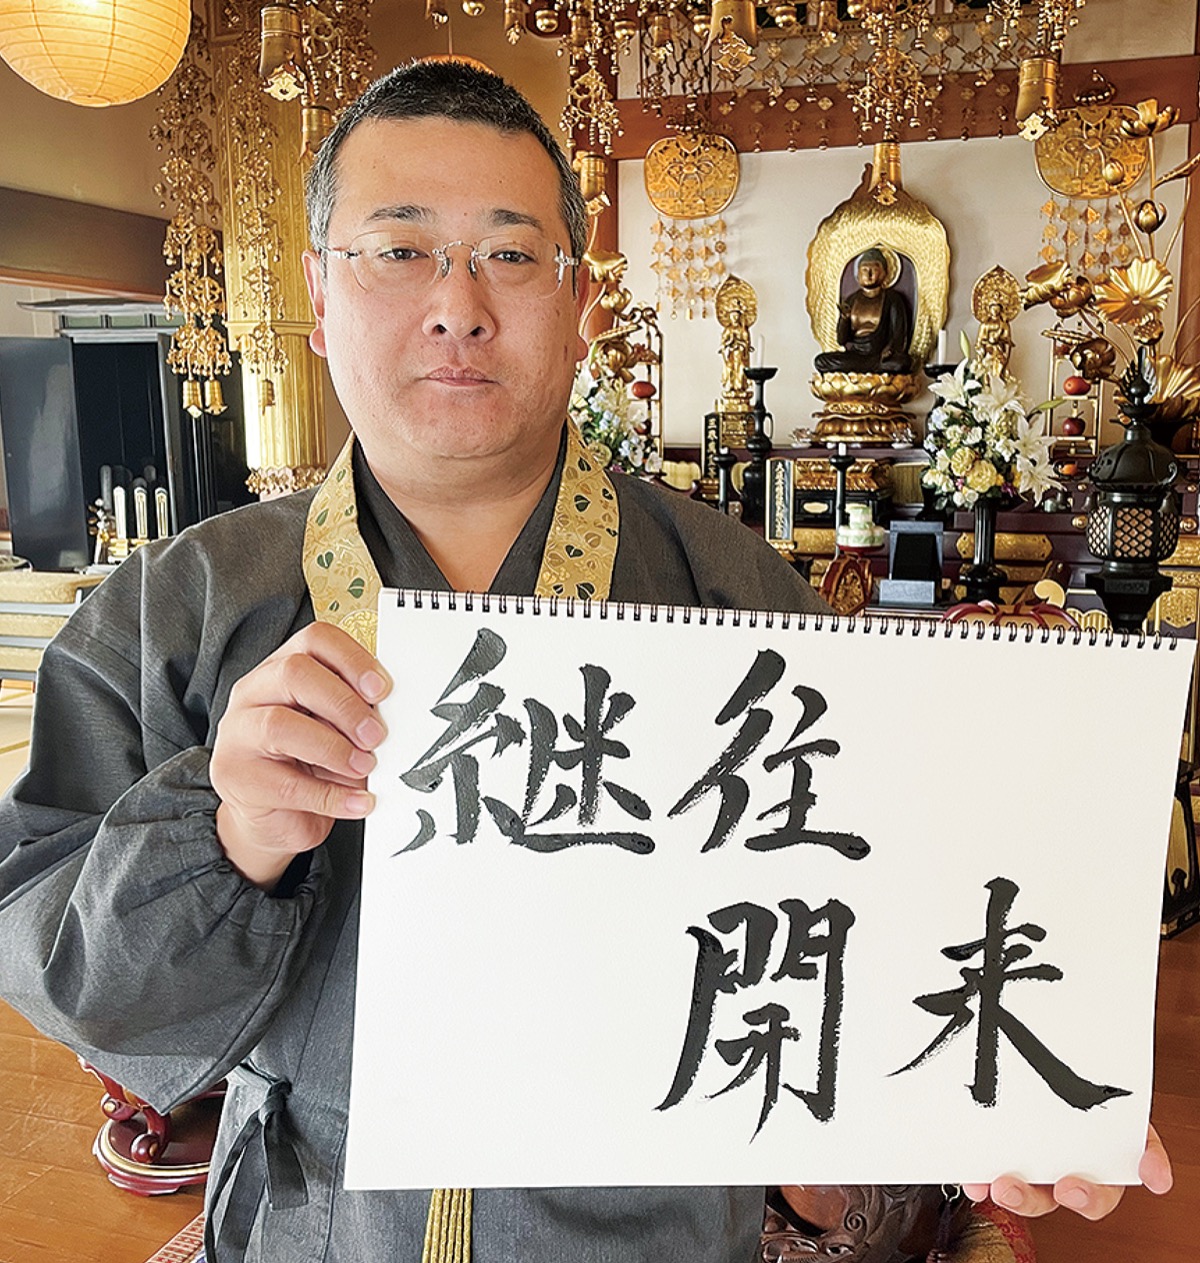 継往
開来